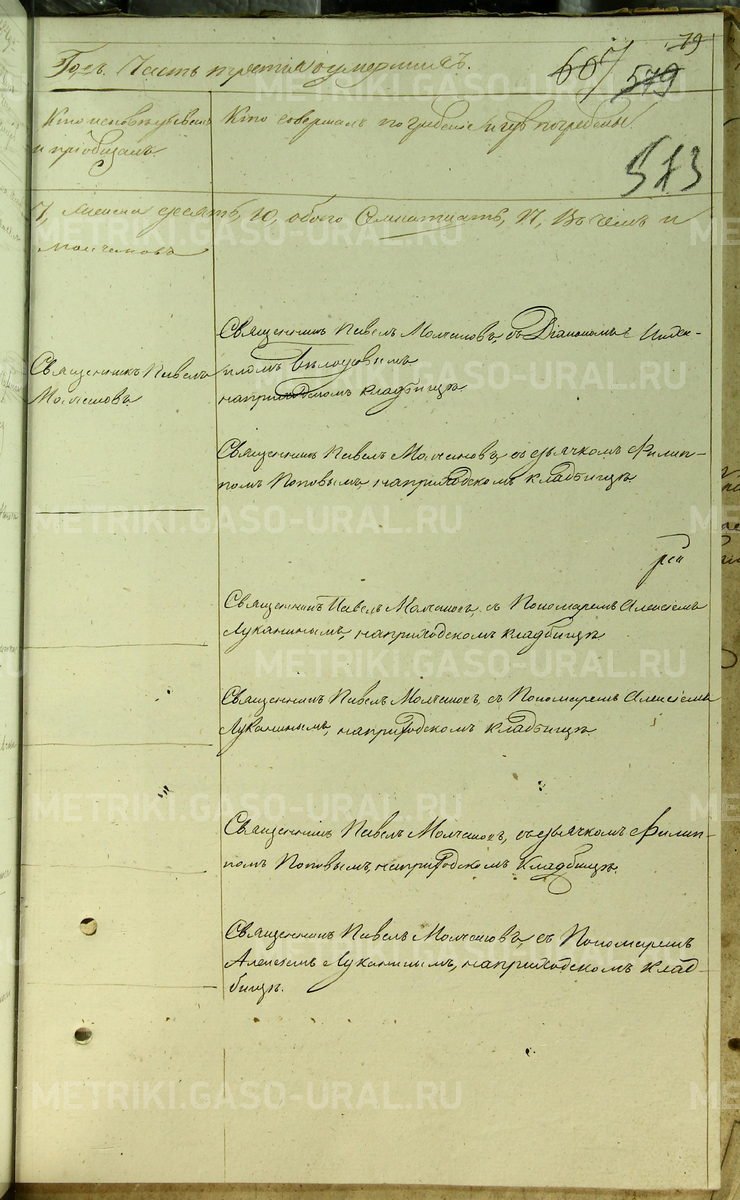 79
Годъ. Часть третія о умершихъ.
607
579
Кто исповѣдывалъ
и пріобщалъ.
Кто совершалъ погребеніе и гдѣ погребены.
513
7, женска десять, 10, обоего Семнатцать, 17, Въ чемъ и
Священникъ Павелъ Молчановъ, съ Діакономъ
наприходскомъ кладбищѣ
Священникъ Павелъ
Молчановъ
Священникъ Павелъ Молчановъ, съ дьячкомъ Филип-
помъ Поповымъ, наприходскомъ кладбищѣ.
Священникъ Павелъ Молчановъ, съ Пономаремъ Алексѣемъ
Луканинымъ, наприходскомъ кладбищѣ
Священникъ Павелъ Молчановъ, съ Пономаремъ Алексѣемъ
Луканинымъ, наприходскомъ кладбищѣ.
Священникъ Павелъ Молчановъ, съ дьячкомъ Филип-
помъ Поповымъ, наприходскомъ кладбищѣ.
Священникъ Павелъ Молчановъ, съ Пономаремъ
Алексѣемъ Луканинымъ, наприходскомъ клад-
бищѣ.
METRIKI.GASO-URAL.RU